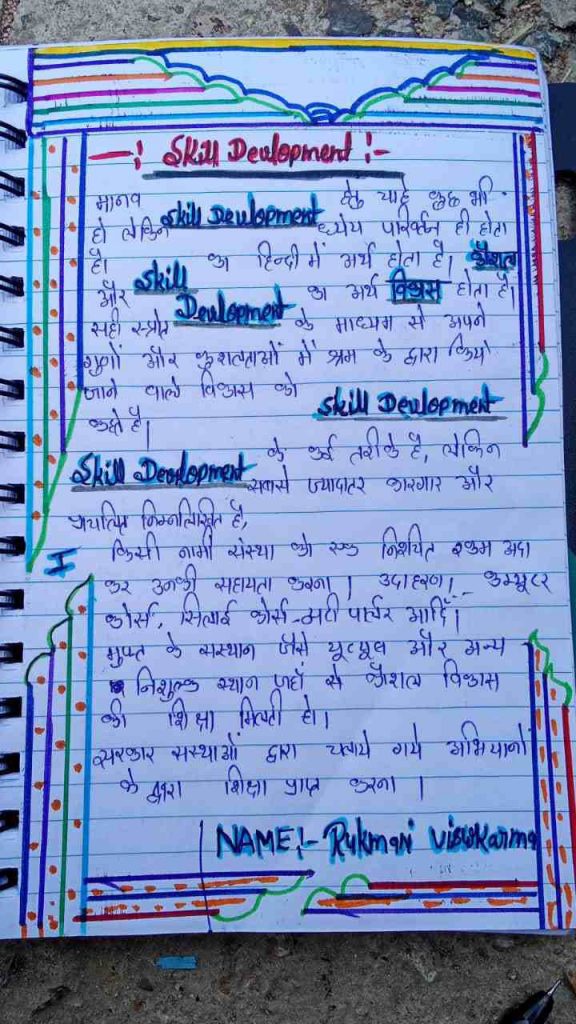 —: Skill Devlopment :-
मानव हेतु चाहे कुछ भी
हो लेकिन Skill Devlopment ध्येय परिवर्तन ही होता
है। का हिन्दी में अर्थ होता है। कौशल
और Skill Devlopment का अर्थ विकास होता है।
सही स्त्रोत के माध्यम से अपने
गुणों और कुशलताओं में श्रम के द्वारा किये
जाने वाले विकास को Skill Devlopment
कहते है।
Skill Devlopment के कई तरीके है, लेकिन
सबसे ज्यादातर कारगार और
प्रचलित निम्नलिखित है,
I किसी नामी संस्था को एक निश्चित रकम अदा
कर उनकी सहायता करना। उदाहरण!- कम्प्यूटर
कोर्स, सिलाई कोर्स - आदि।
मुफ्त के संस्थान जैसे यूट्यूब और अन्य
निशुल्क स्थान जहाँ से कौशल विकास
की शिक्षा मिलती हो।
सरकार संस्थाओं द्वारा चलाये गये अभियानों
के द्वारा शिक्षा प्राप्त करना।
NAME:- Rukmani Viswkarma